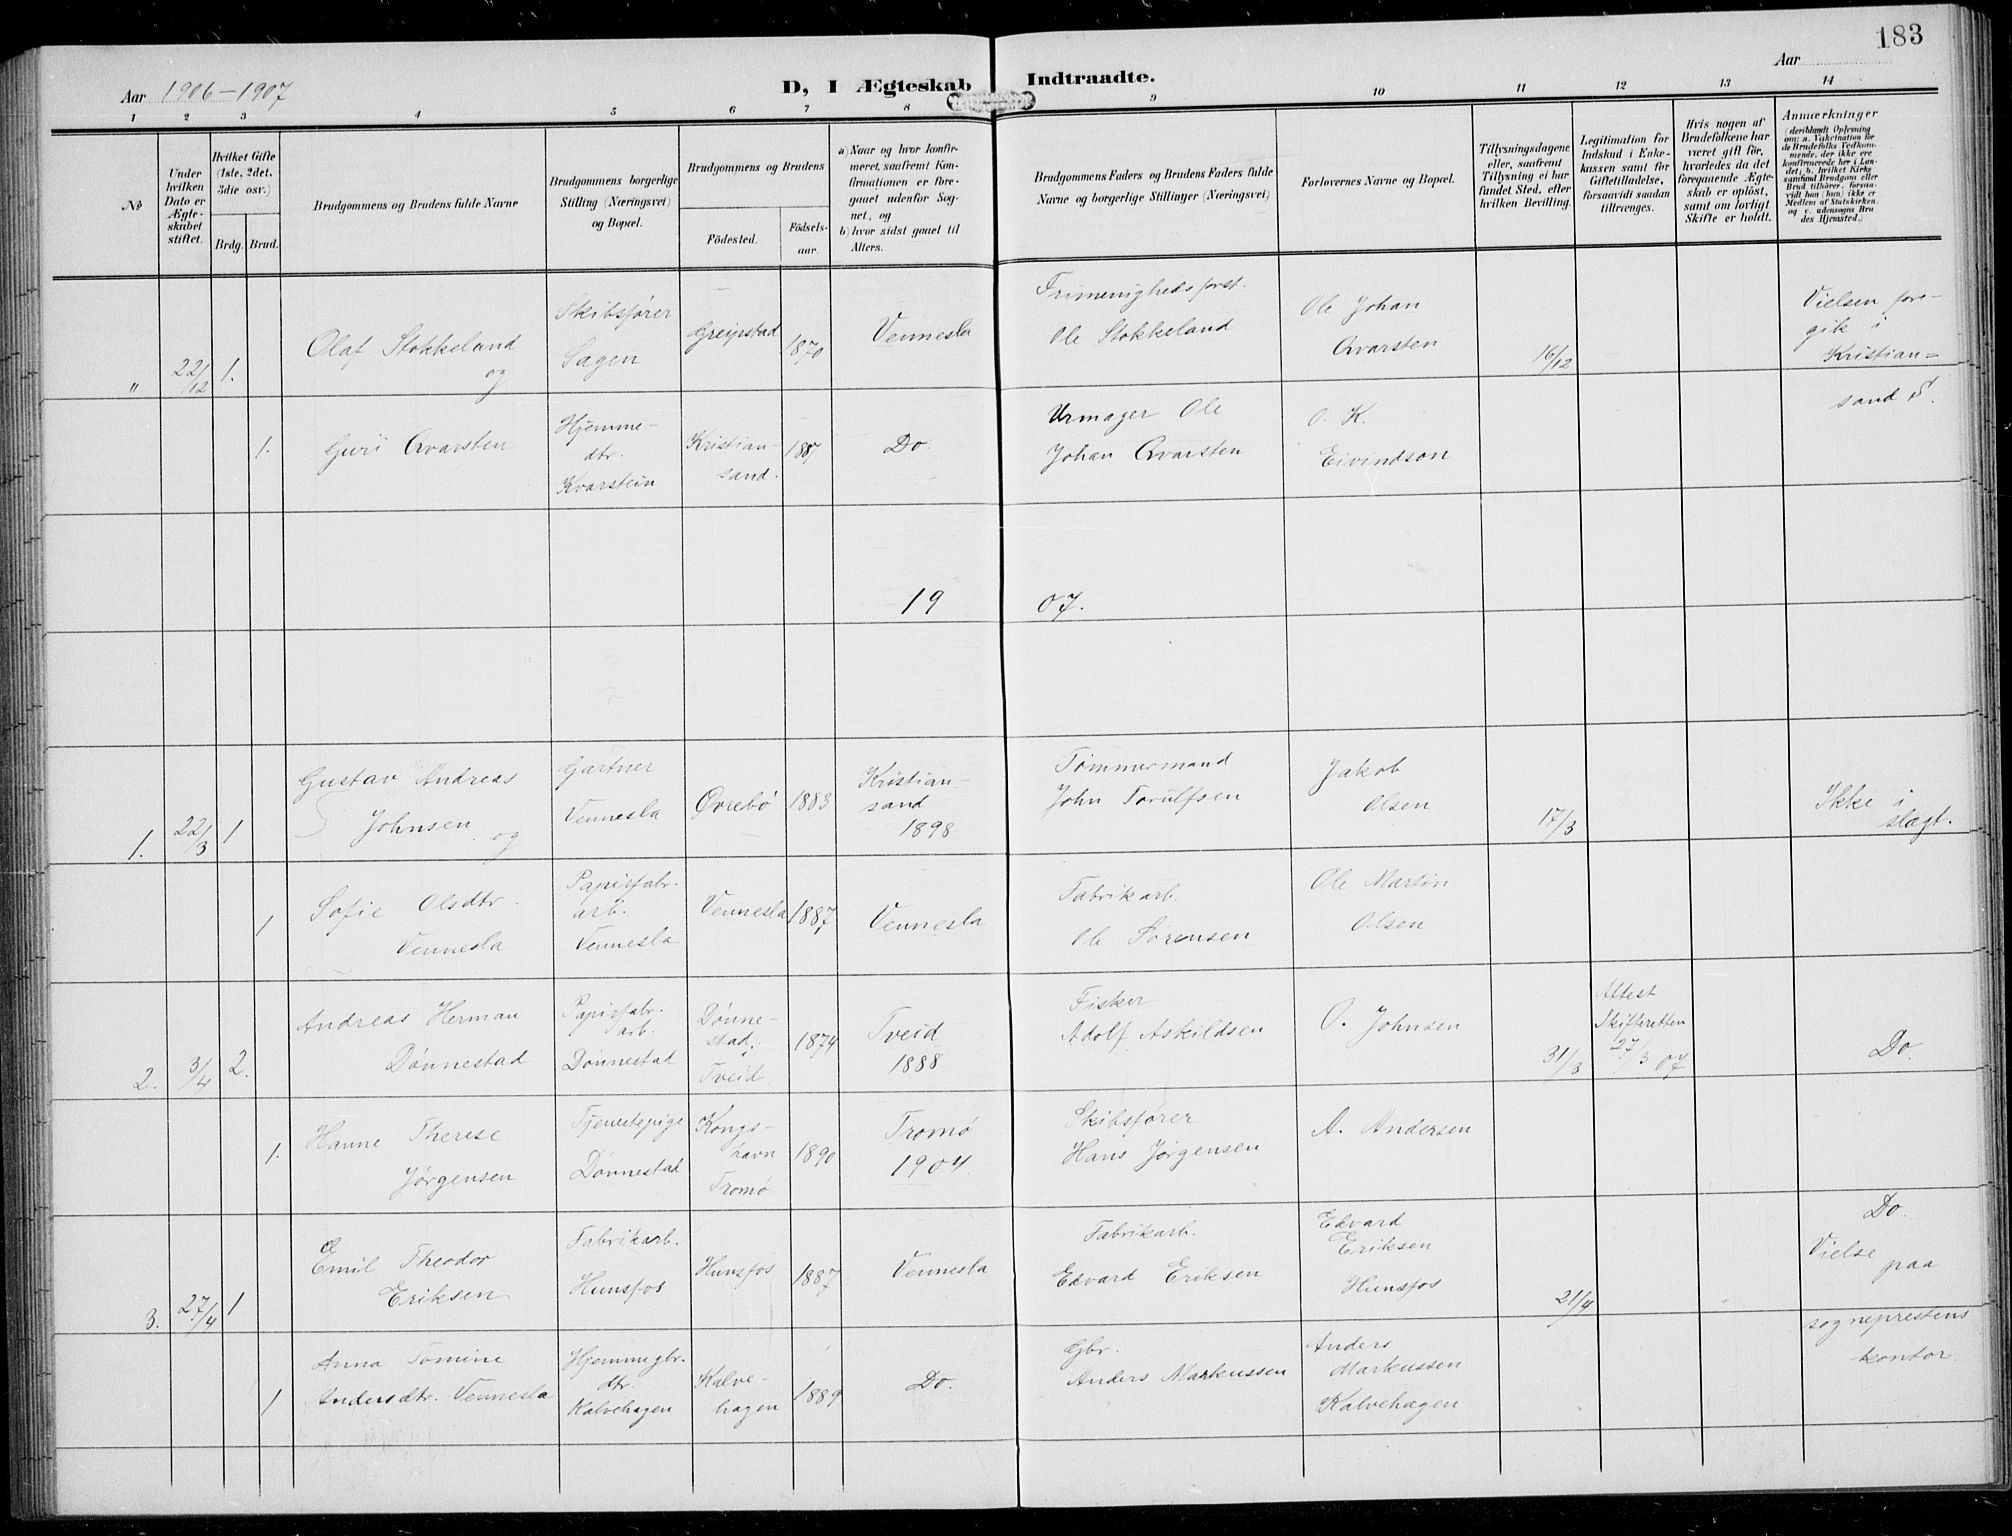 183
Aar 1906-1907
D, I Ægteskab Indtraadte.
Aar
1 2 3 4 5 6 7 8 9 10 11 12 13 14
No
Under hvilken Dato er Ægteskabet stiftet.
Hvilket Gifte (1ste, 2det, 3die osv.)
Brdg. Brud.
Brudgommens og Brudens fulde Navne
Brudgommens borgerlige Stilling (Næringsvei) og Bopæl.
Brudgommens og Brudens
Födested.
Födsels-aar.
a) Naar og hvor konfirmeret, saafremt Konfirmationen er foregaaet udenfor Sognet, og
b) hvor sidst gaaet til Alters.
Brudgommens Faders og Brudens Faders fulde Navne og borgerlige Stillinger (Næringsvei)
Forlovernes Navne og Bopæl.
Tillysningsdagene eller, saafremt Tillysning ei har fundet Sted, efter hvilken Bevilling.
Legitimation for Indskud i Enkekassen samt for Giftetilladelse, forsaavidt saadan tiltrænges.
Hvis nogen af Brudefolkene har været gift för, hvorledes da det foregaaende Ægteskab er oplöst, samt om lovligt Skifte er holdt.
Anmærkninger (deriblandt Oplysning om: a. Vakcination for de Brudefolks Vedkommende, der ikke ere konfirmerede her i Landet; b. hvilket Kirkesamfund Brudgom eller Brud tilhörer, forsaavidt han (hun) ikke er Medlem af Statskirken, og c. udensogns Brudes Hjemsted.)
" 22/12 1. Olaf Stokkeland og
Skibsfører
Greipstad 1870 Vennesla
Frimenighedsforst. Ole Stokkeland
Ole Johan Qvarsten
16/12
Vielsen foregik i Kristiansand S.
1. Guri Qvarsten
Hjemmedtr. Kvarstein
Kristiansand. 1887 Do.
Urmager Ole Johan Qvarsten
O. K. Eivindson
1907.
1. 22/3 1 Gustav Andreas Johnsen og
Gartner Vennesla
Øvrebö 1883
Kristiansand 1898
Tømmermand John Torulfsen
Jakob Olsen
17/3
Ikke i slægt.
1 Sofie Olsdtr. Vennesla
Papirfabr. arb. Vennesla
Vennesla 1887 Vennesla
Fabrikarb. Ole Sørensen
Ole Martin Olsen
2. 3/4 2. Andreas Herman Dønnestad
Papirfabr. arb. Dønnestad
Dønnestad i Tveid 1874
Tveid 1888
Fisker Adolf Askildsen
O. Johnsen
31/3
Attest Skifteretten 27/3 07
Do.
1. Hanne Therese Jørgensen
Tjenestepige Dønnestad
Kongshavn Tromø 1890
Tromø 1904.
Skibsfører Hans Jørgensen
A. Andersen
3. 27/4 1 Emil Theodor Eriksen
Fabrikarb. Hunsfos
Hunsfos 1887 Vennesla
Fabrikarb. Edvard Eriksen
Edvard Eriksen Hunsfos
21/4
Do.
Vielse paa sogneprestens kontor.
1 Anna Tomine Andersdtr. Vennesla
Hjemmegbr. dtr. Kalvehagen
Kalvehagen 1889 Do.
Gbr. Anders Markussen
Anders Markussen Kalvehagen